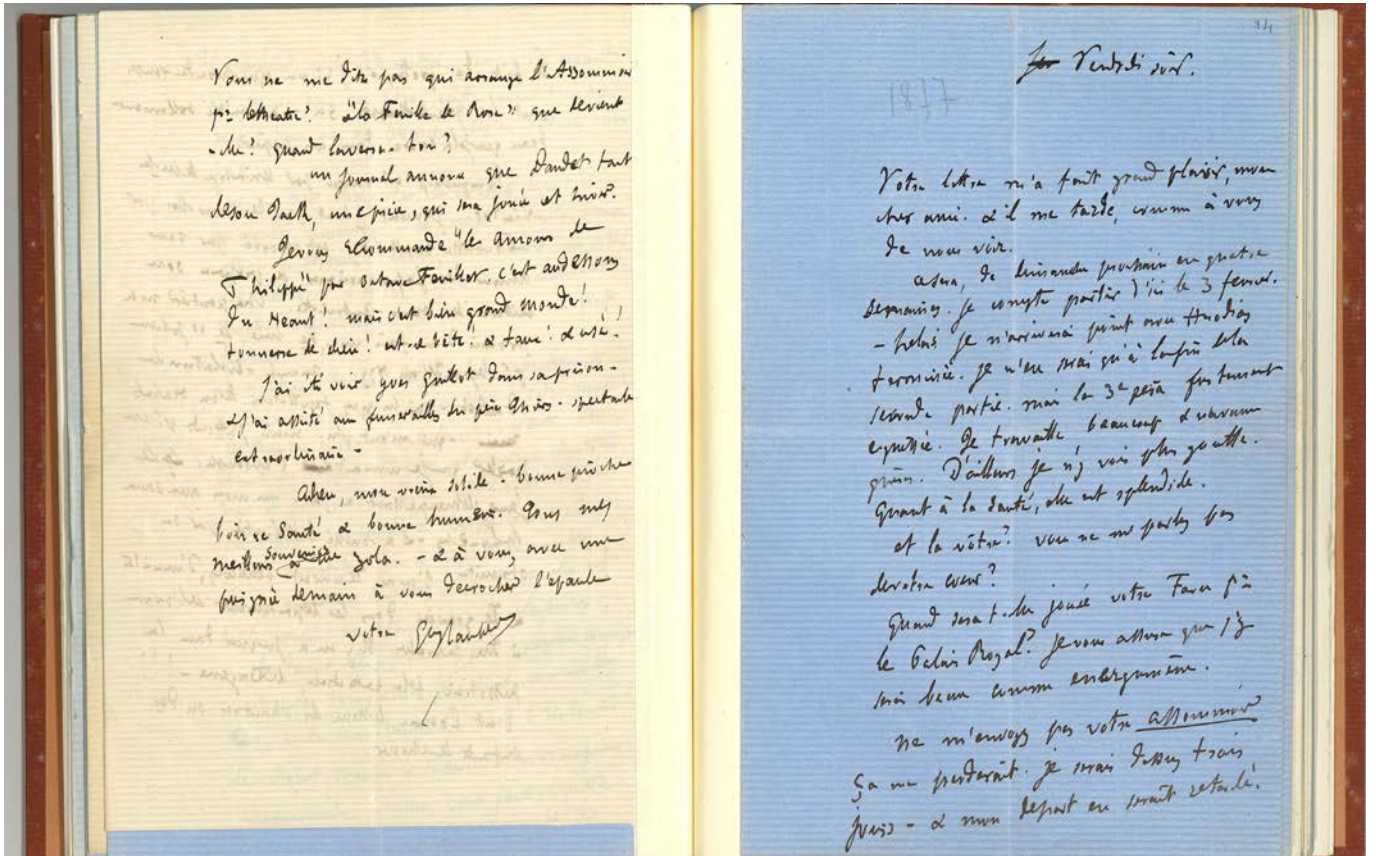 Vous ne me dites pas qui arrange l'Assommoir
pr le theatre? "à la Feuille de Rose" que devient
-elle? quand l'aversa-t-on?
un journal annonce que Daudet fait
de son Jack, une piece, qui sera jouée cet hiver.
Je vous recommande "les Amours de
Philippe" par Octave Feuillet c'est au dessous
du Neant! mais c'est bien grand monde!
tonnerre de dieu! est-ce bête! & faux! & usé!
J'ai été voir Yves Guillot dans sa prison -
& j'ai assisté aux funerailles du père Thiers. spectacle
extraordinaire -
Adieu, mon vieux solide. bonne pioche
bonne santé & bonne humeur. Tous mes
meilleurs souvenirs à Zola. - & à vous, avec une
poignée de main à vous decrocher l'epaule
votre Gve Flaubert
14
Vendredi soir.
1877
Votre lettre m'a fait grand plaisir, mon
cher ami. & il me tarde, comme à vous
de nous voir.
ce sera, de dimanche prochain en quatre
semaines. je compte partir d'ici le 3 fevrier.
- helas je n'arriverai point avec Herodias
terminée. je n'en serai qu'à la fin de la
seconde partie. mais la 3e sera fortement
esquissée. Je travaille beaucoup & n'avance
guères. D'ailleurs je n'y vois plus goutte.
Quant à la santé, elle est splendide.
et la vôtre? vous ne me parlez pas
de votre coeur?
Quand sera t-elle jouée votre Farce pr
le Palais Royal? Je vous assure que j'y
serai beau comme energumène.
ne m'envoyez pas votre assommoir
Ça me perderait. je serais dessus trois
jours - & mon depart en serait retardé.